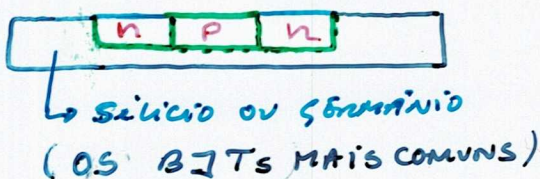 n p n
Silício ou Germânio
(OS BJTs MAIS COMUNS)